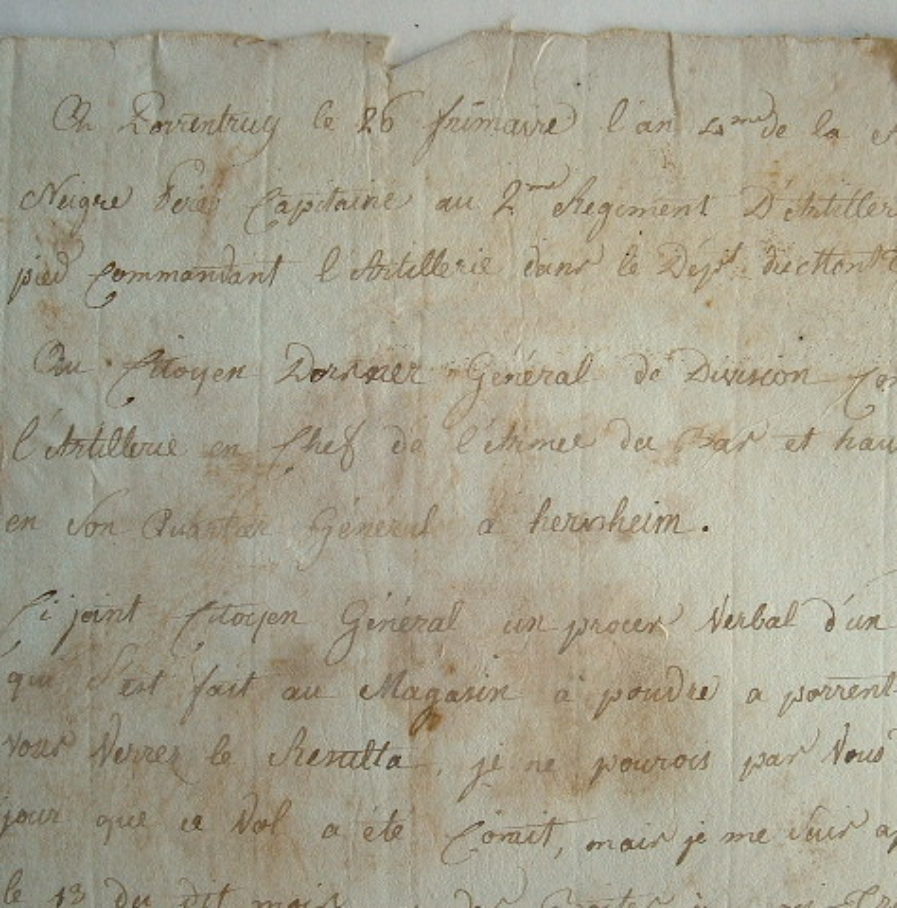 A Porrentruy le 26 frimaire l'an 4me de la
Neigre Capitaine au 2me Regiment D'Artiller
pied Commandant l'Artillerie dans le Dépt du Mont
Au Citoyen Dorsner Général de Division Co
l'Artillerie en Chef de l'Armee du Bas et hau
en Son Quartier Géneral a hernheim.
Ci joint Citoyen Général un proces Verbal d'un
qui S'est fait au Magasin a poudre a porrent
vous Verrez le Resulta, je ne pourois par Vous
jour que ce Vol a été Comit, mais je me suis a
le 13 du dit mois